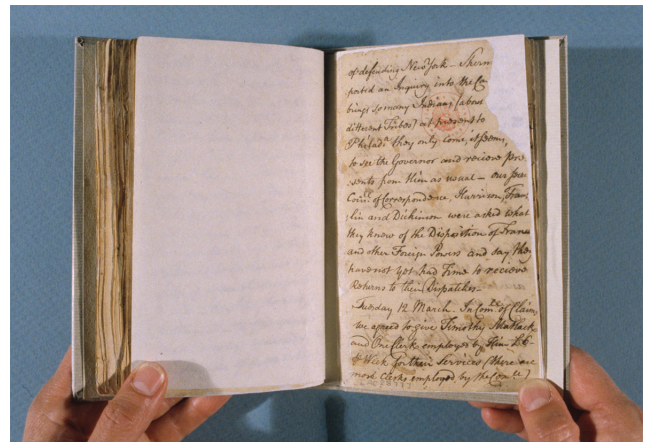 of defending New York – Sherm
ported an Inquiry into the
brings so many Indians (about
different Tribes) at present to
Philada they only come, it seems,
to see the Governor and recieve pre
sents from Him as usual – our secr
Comee of Correspondence, Harrison, Frank
lin and Dickinson were asked what
they know of the Disposition of France
and other Foreign Powers and say they
have not yet had Time to recieve
Returns to their Dispatches –
Tuesday 12 March. In Comee of Claims
we agreed to give Timothy Matlack
and One Clerk employed by Him
Week for their Services (there are
most Clerks employed by the